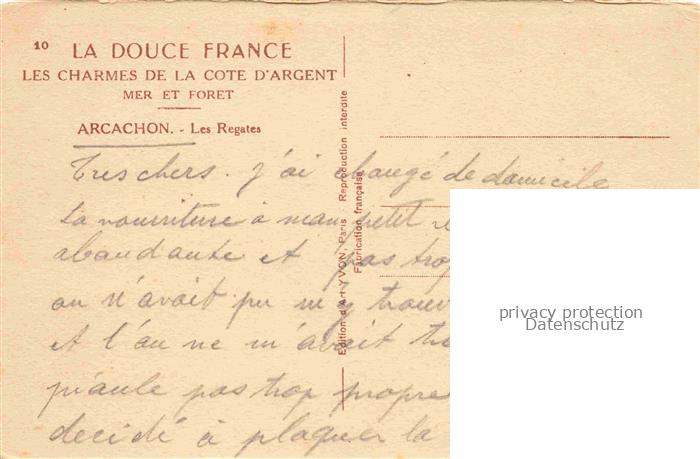 10
LA DOUCE FRANCE
LES CHARMES DE LA COTE D'ARGENT
MER ET FORET
ARCACHON. - Les Regates
Edition d'Art YVON, Paris Reproduction interdite
Fabrication française
Tres chers. J'ai changé de domicile
La nourriture à mon petit
abondante et pas trop
on n'avait pu m'y
et l'on ne m'avait
piaule pas trop propre
decidé à plaquer la
privacy protection
Datenschutz